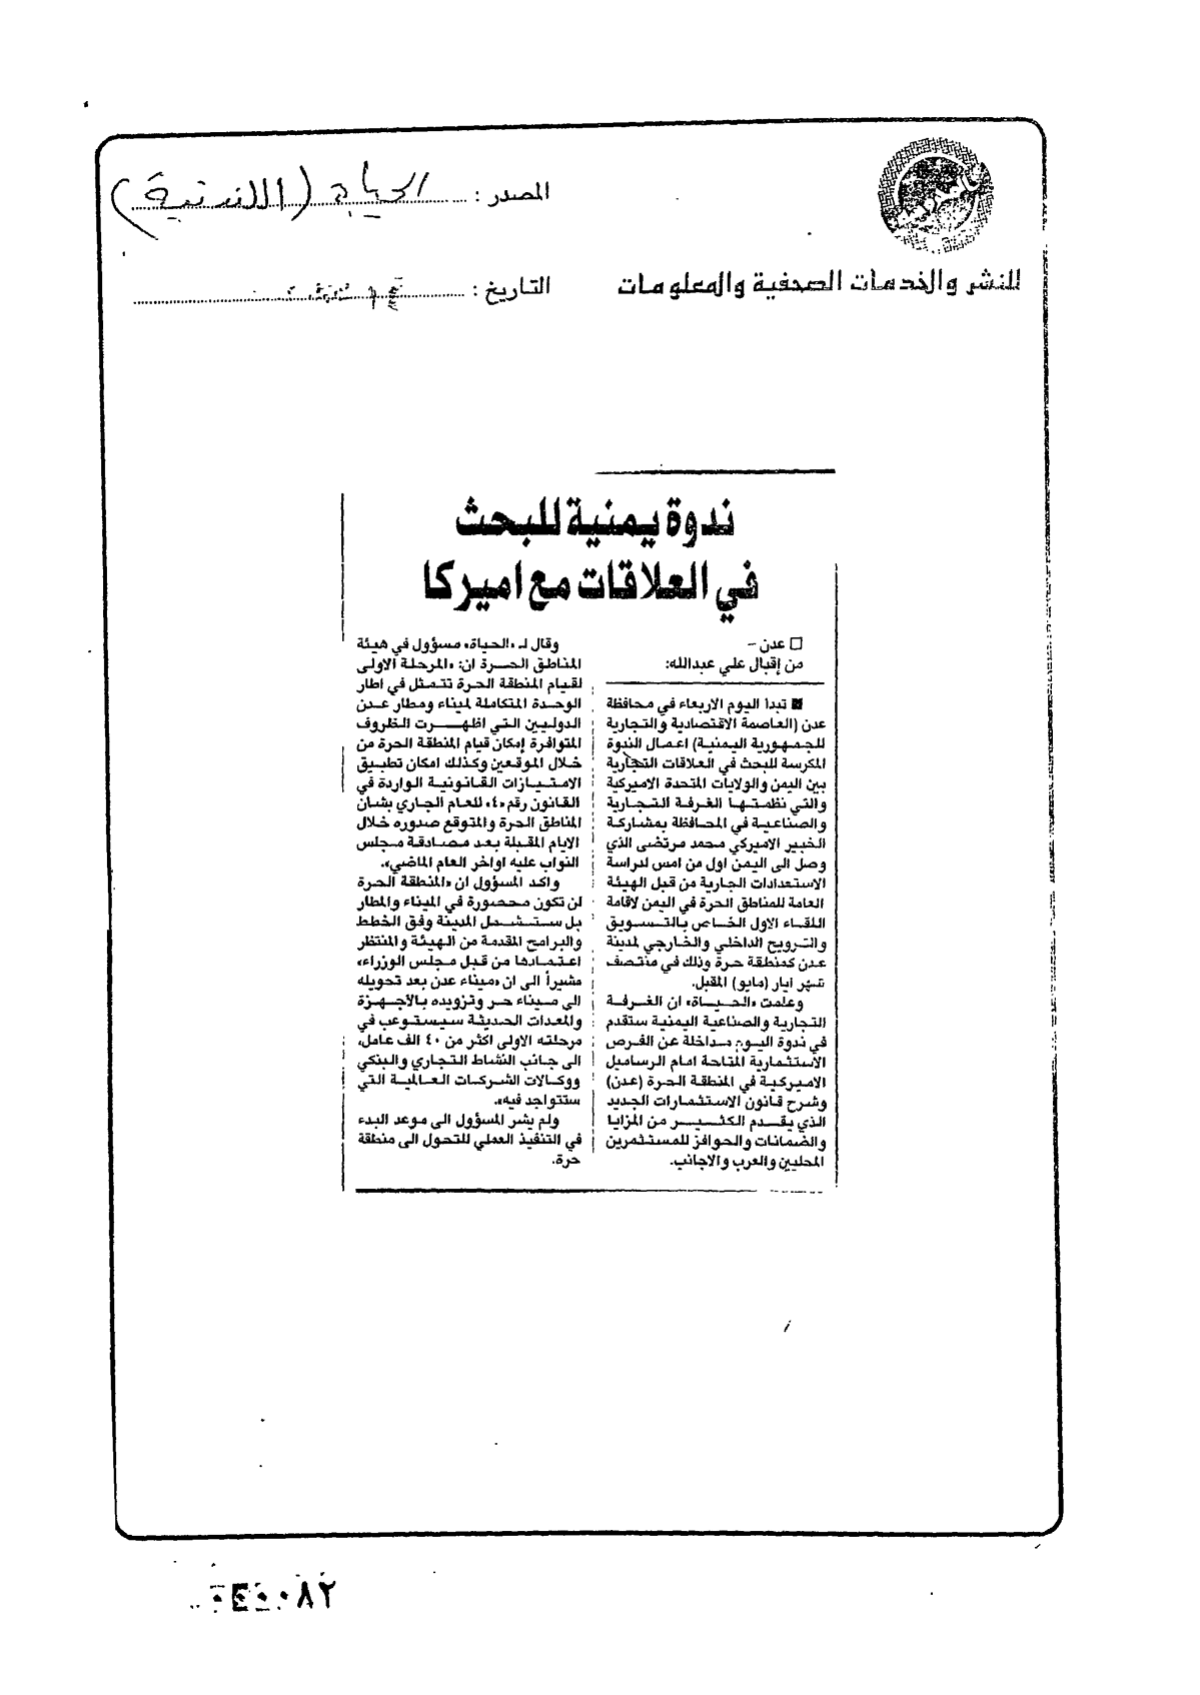 المصدر : الحياة (اللندنية)
للنشر والخدمات الصحفية والمعلومات
التاريخ :
ندوة يمنية للبحث
في العلاقات مع اميركا
□ عدن –
من إقبال علي عبدالله:
■ تبدأ اليوم الاربعاء في محافظة
عدن (العاصمة الاقتصادية والتجارية
للجمهورية اليمنية) اعمال الندوة
المكرسة للبحث في العلاقات التجارية
بين اليمن والولايات المتحدة الاميركية
والتي نظمتها الغرفة التجارية
والصناعية في المحافظة بمشاركة
الخبير الاميركي محمد مرتضى الذي
وصل الى اليمن اول من امس لدراسة
الاستعدادات الجارية من قبل الهيئة
العامة للمناطق الحرة في اليمن لاقامة
اللقاء الاول الخاص بالتسويق
والترويج الداخلي والخارجي لمدينة
عدن كمنطقة حرة وذلك في منتصف
شهر ايار (مايو) المقبل.
وعلمت «الحياة» ان الغرفة
التجارية والصناعية اليمنية ستقدم
في ندوة اليوم مداخلة عن الفرص
الاستثمارية المتاحة امام الرساميل
الاميركية في المنطقة الحرة (عدن)
وشرح قانون الاستثمارات الجديد
الذي يقدم الكثير من المزايا
والضمانات والحوافز للمستثمرين
المحليين والعرب والاجانب.
وقال لـ «الحياة» مسؤول في هيئة
المناطق الحرة ان: «المرحلة الاولى
لقيام المنطقة الحرة تتمثل في اطار
الوحدة المتكاملة لميناء ومطار عدن
الدوليين التي اظهرت الظروف
المتوافرة إمكان قيام المنطقة الحرة من
خلال الموقعين وكذلك امكان تطبيق
الامتيازات القانونية الواردة في
القانون رقم «٤» للعام الجاري بشأن
المناطق الحرة والمتوقع صدوره خلال
الايام المقبلة بعد مصادقة مجلس
النواب عليه اواخر العام الماضي».
واكد المسؤول ان «المنطقة الحرة
لن تكون محصورة في الميناء والمطار
بل ستشمل المدينة وفق الخطط
والبرامج المقدمة من الهيئة والمنتظر
اعتمادها من قبل مجلس الوزراء»
مشيراً الى ان «ميناء عدن بعد تحويله
الى ميناء حر وتزويده بالاجهزة
والمعدات الحديثة سيستوعب في
مرحلته الاولى اكثر من ٤٠ الف عامل،
الى جانب النشاط التجاري والبنكي
ووكالات الشركات العالمية التي
ستتواجد فيه».
ولم يشر المسؤول الى موعد البدء
في التنفيذ العملي للتحول الى منطقة
حرة.